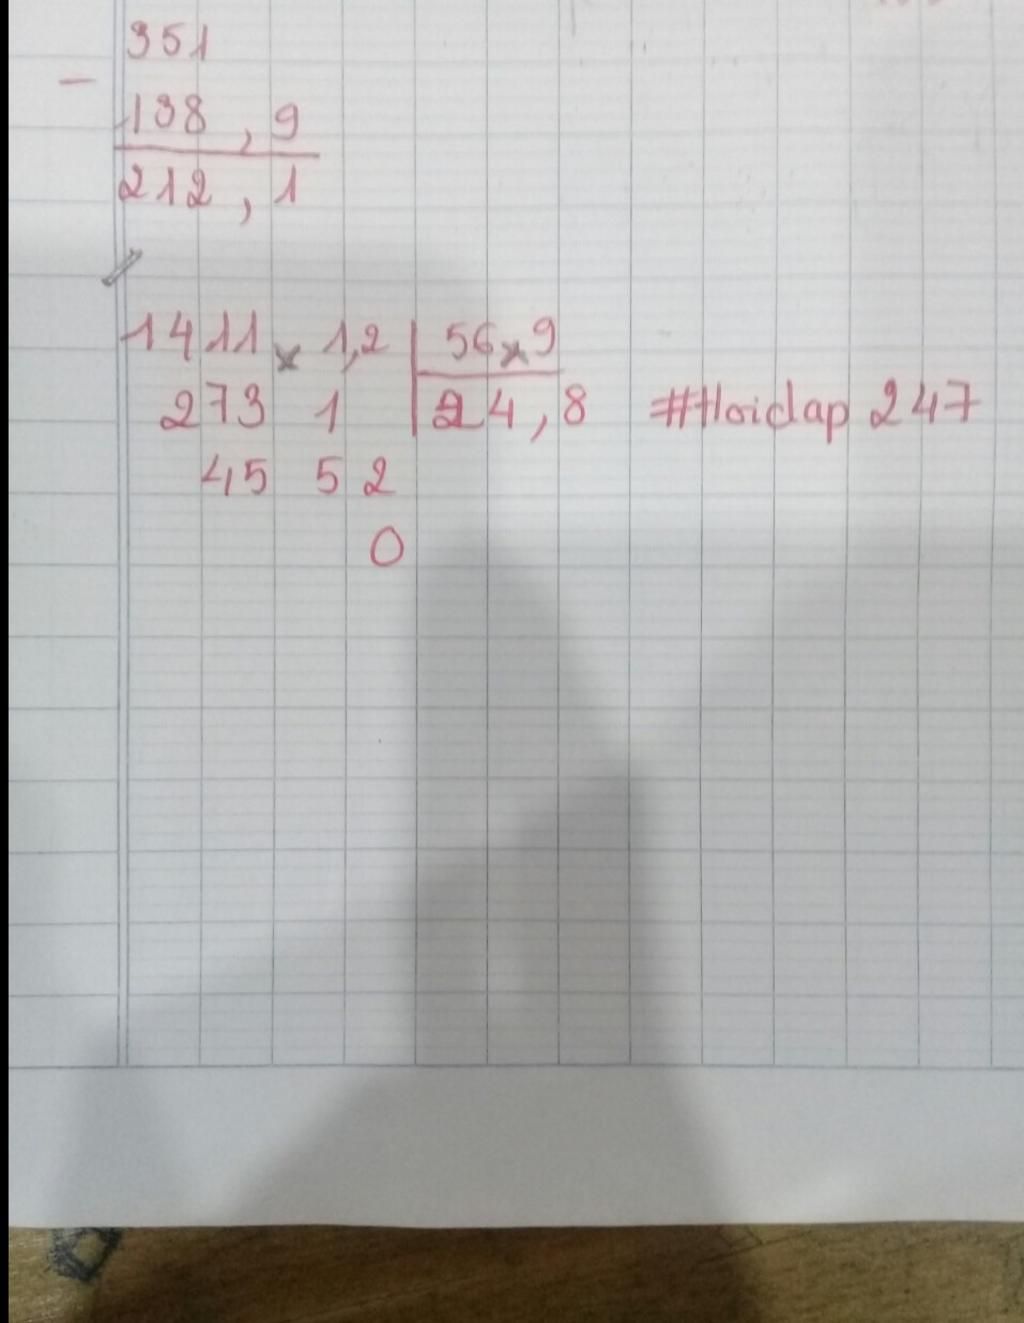 351
-
138,9
212,1
1411x 1,2 56x9
273 1 24,8 #Hoidap 247
45 5 2
0